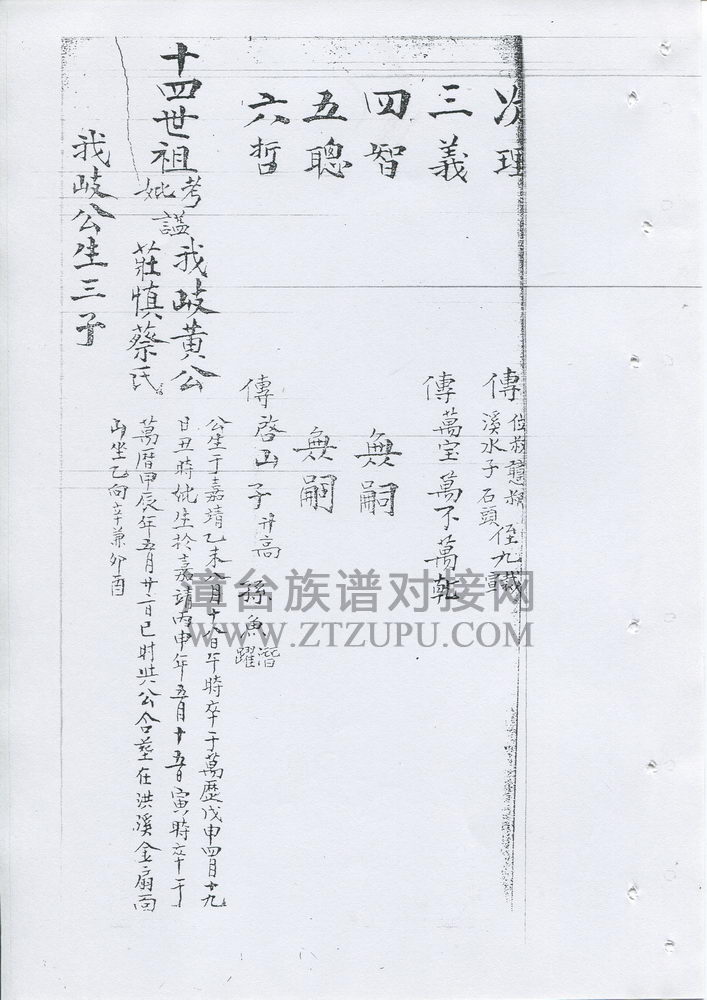 次理
傳
溪水子石頭
三義
傳萬宝萬不萬乾
四智
無嗣
五聰
無嗣
六哲
傳啓山子升高孫魚潛躍
十四世祖考妣諡我岐黃公莊慎蔡氏
公生于嘉靖乙未八月十八日午時卒于萬歷戊申四月十九
日丑時妣生於嘉靖丙申年五月十五日寅時卒于
萬曆甲辰年五月廿一日巳时共公合墓在洪溪金扇面
山坐乙向辛兼卯酉
我岐公生三子
漳台族谱对接网
WWW.ZTZUPU.COM